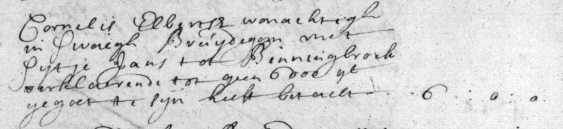 Cornelis Elbertsz wonachtigh
in Swaegh Bruijdegom met
Sijtje Jans tot Benningbroek
verklaerende tot geen 6000 gl
gegoet te sijn heeft betaelt 6 : 0 : 0